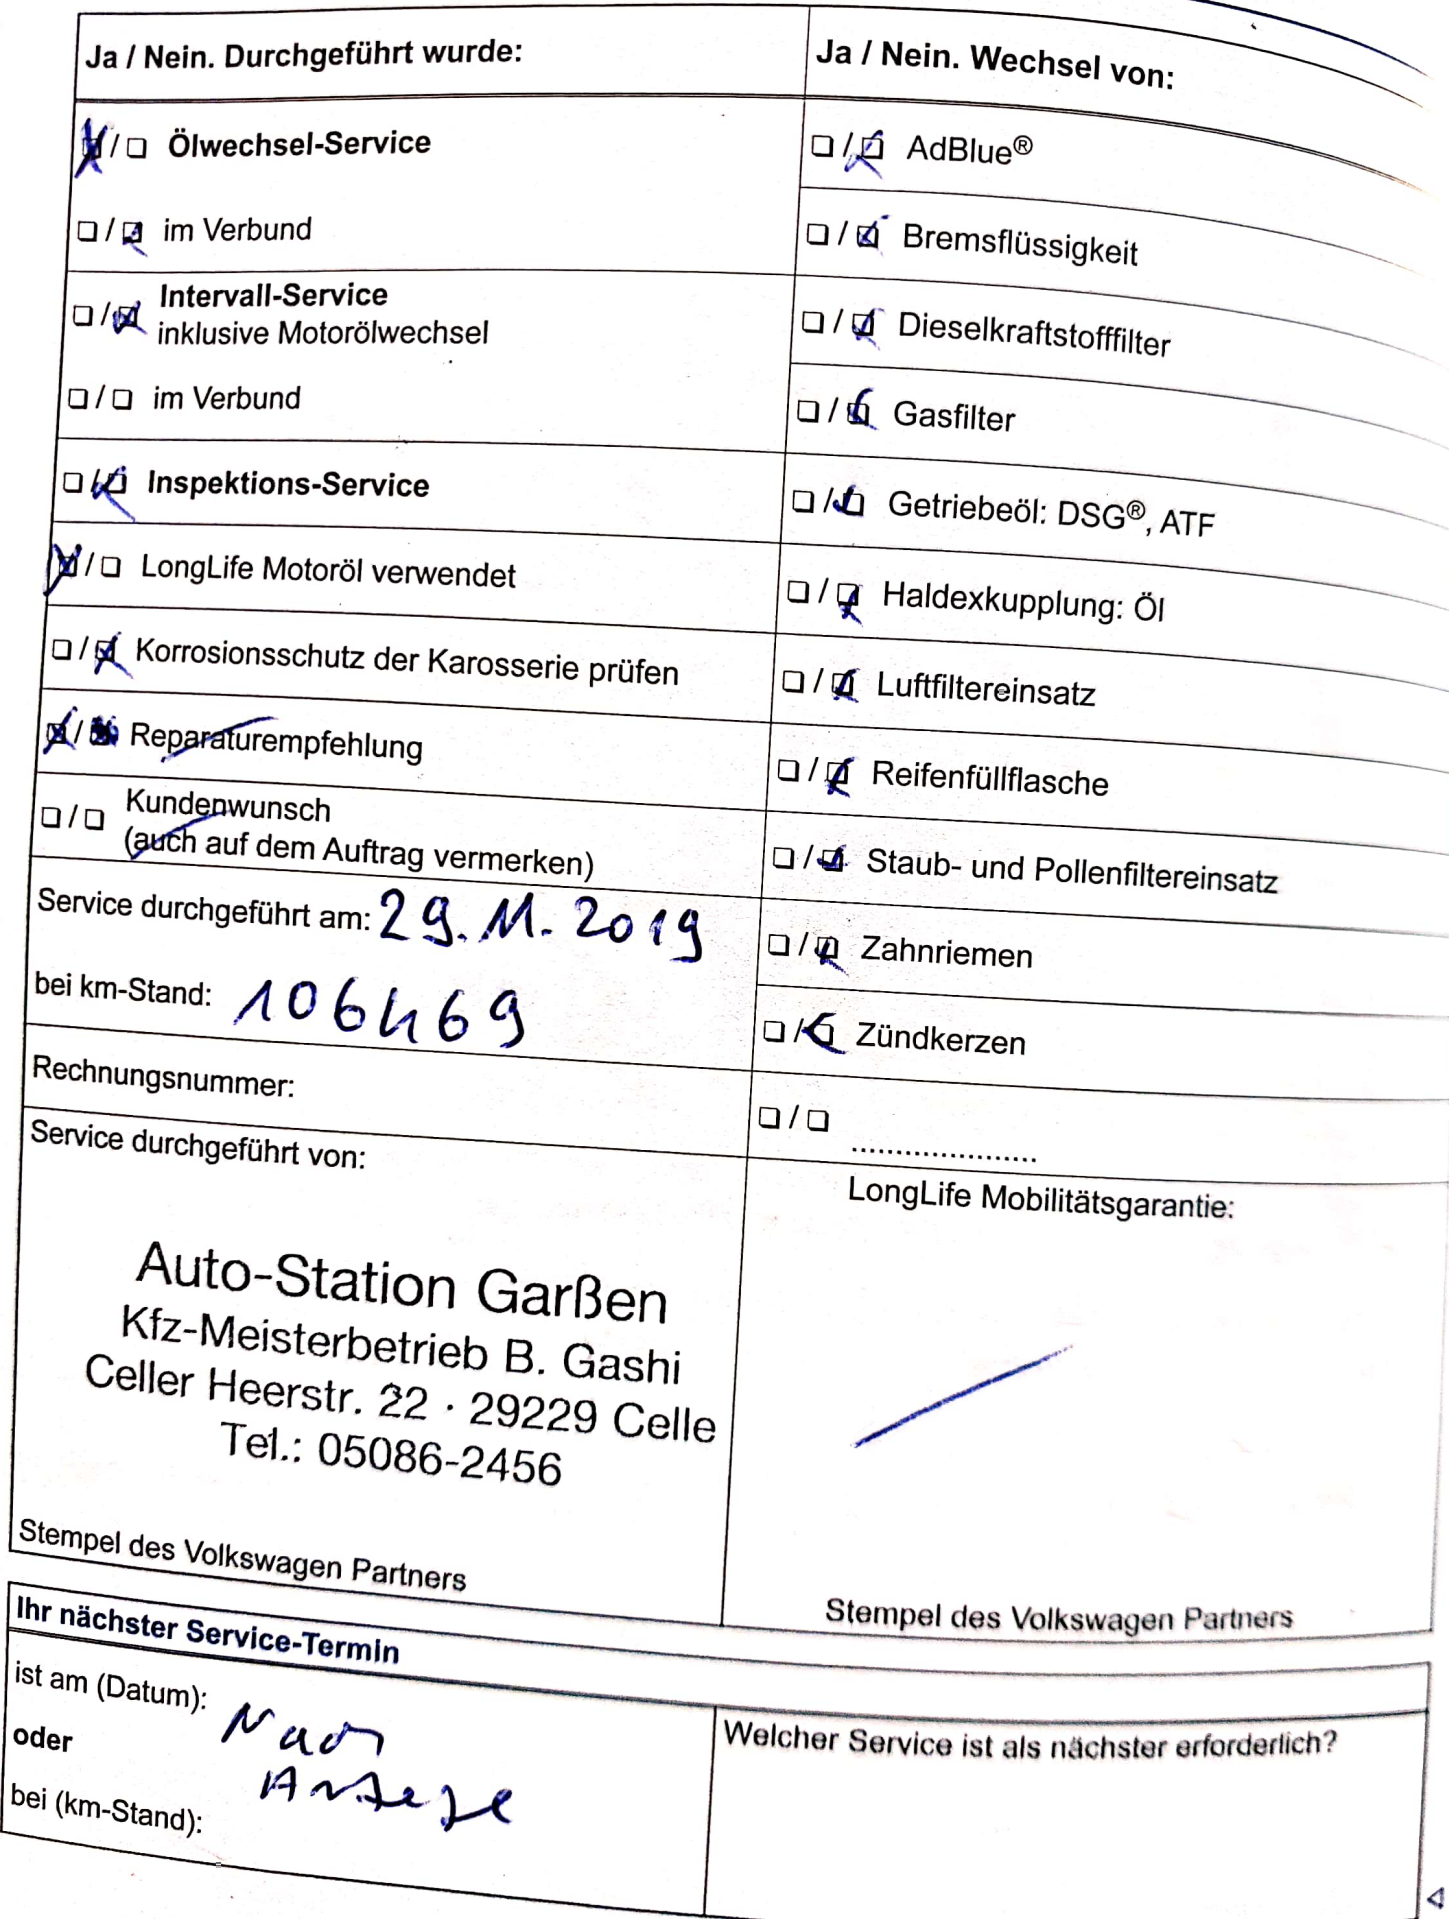 Ja / Nein. Durchgeführt wurde:
☒/☐ Ölwechsel-Service
☐/☒ im Verbund
☐/☒ Intervall-Service
inklusive Motorölwechsel
☐/☐ im Verbund
☐/☒ Inspektions-Service
☒/☐ LongLife Motoröl verwendet
☐/☒ Korrosionsschutz der Karosserie prüfen
☒/☒ Reparaturempfehlung
☐/☐ Kundenwunsch
(auch auf dem Auftrag vermerken)
Service durchgeführt am: 29.11.2019
bei km-Stand: 106469
Rechnungsnummer:
Service durchgeführt von:
Auto-Station Garßen
Kfz-Meisterbetrieb B. Gashi
Celler Heerstr. 22 · 29229 Celle
Tel.: 05086-2456
Stempel des Volkswagen Partners
Ja / Nein. Wechsel von:
☐/☒ AdBlue®
☐/☒ Bremsflüssigkeit
☐/☒ Dieselkraftstofffilter
☐/☒ Gasfilter
☐/☒ Getriebeöl: DSG®, ATF
☐/☒ Haldexkupplung: Öl
☐/☒ Luftfiltereinsatz
☐/☒ Reifenfüllflasche
☐/☒ Staub- und Pollenfiltereinsatz
☐/☒ Zahnriemen
☐/☒ Zündkerzen
☐/☐ .....................
LongLife Mobilitätsgarantie:
Stempel des Volkswagen Partners
Ihr nächster Service-Termin
ist am (Datum): Nach
oder
Anzeige
bei (km-Stand):
Welcher Service ist als nächster erforderlich?